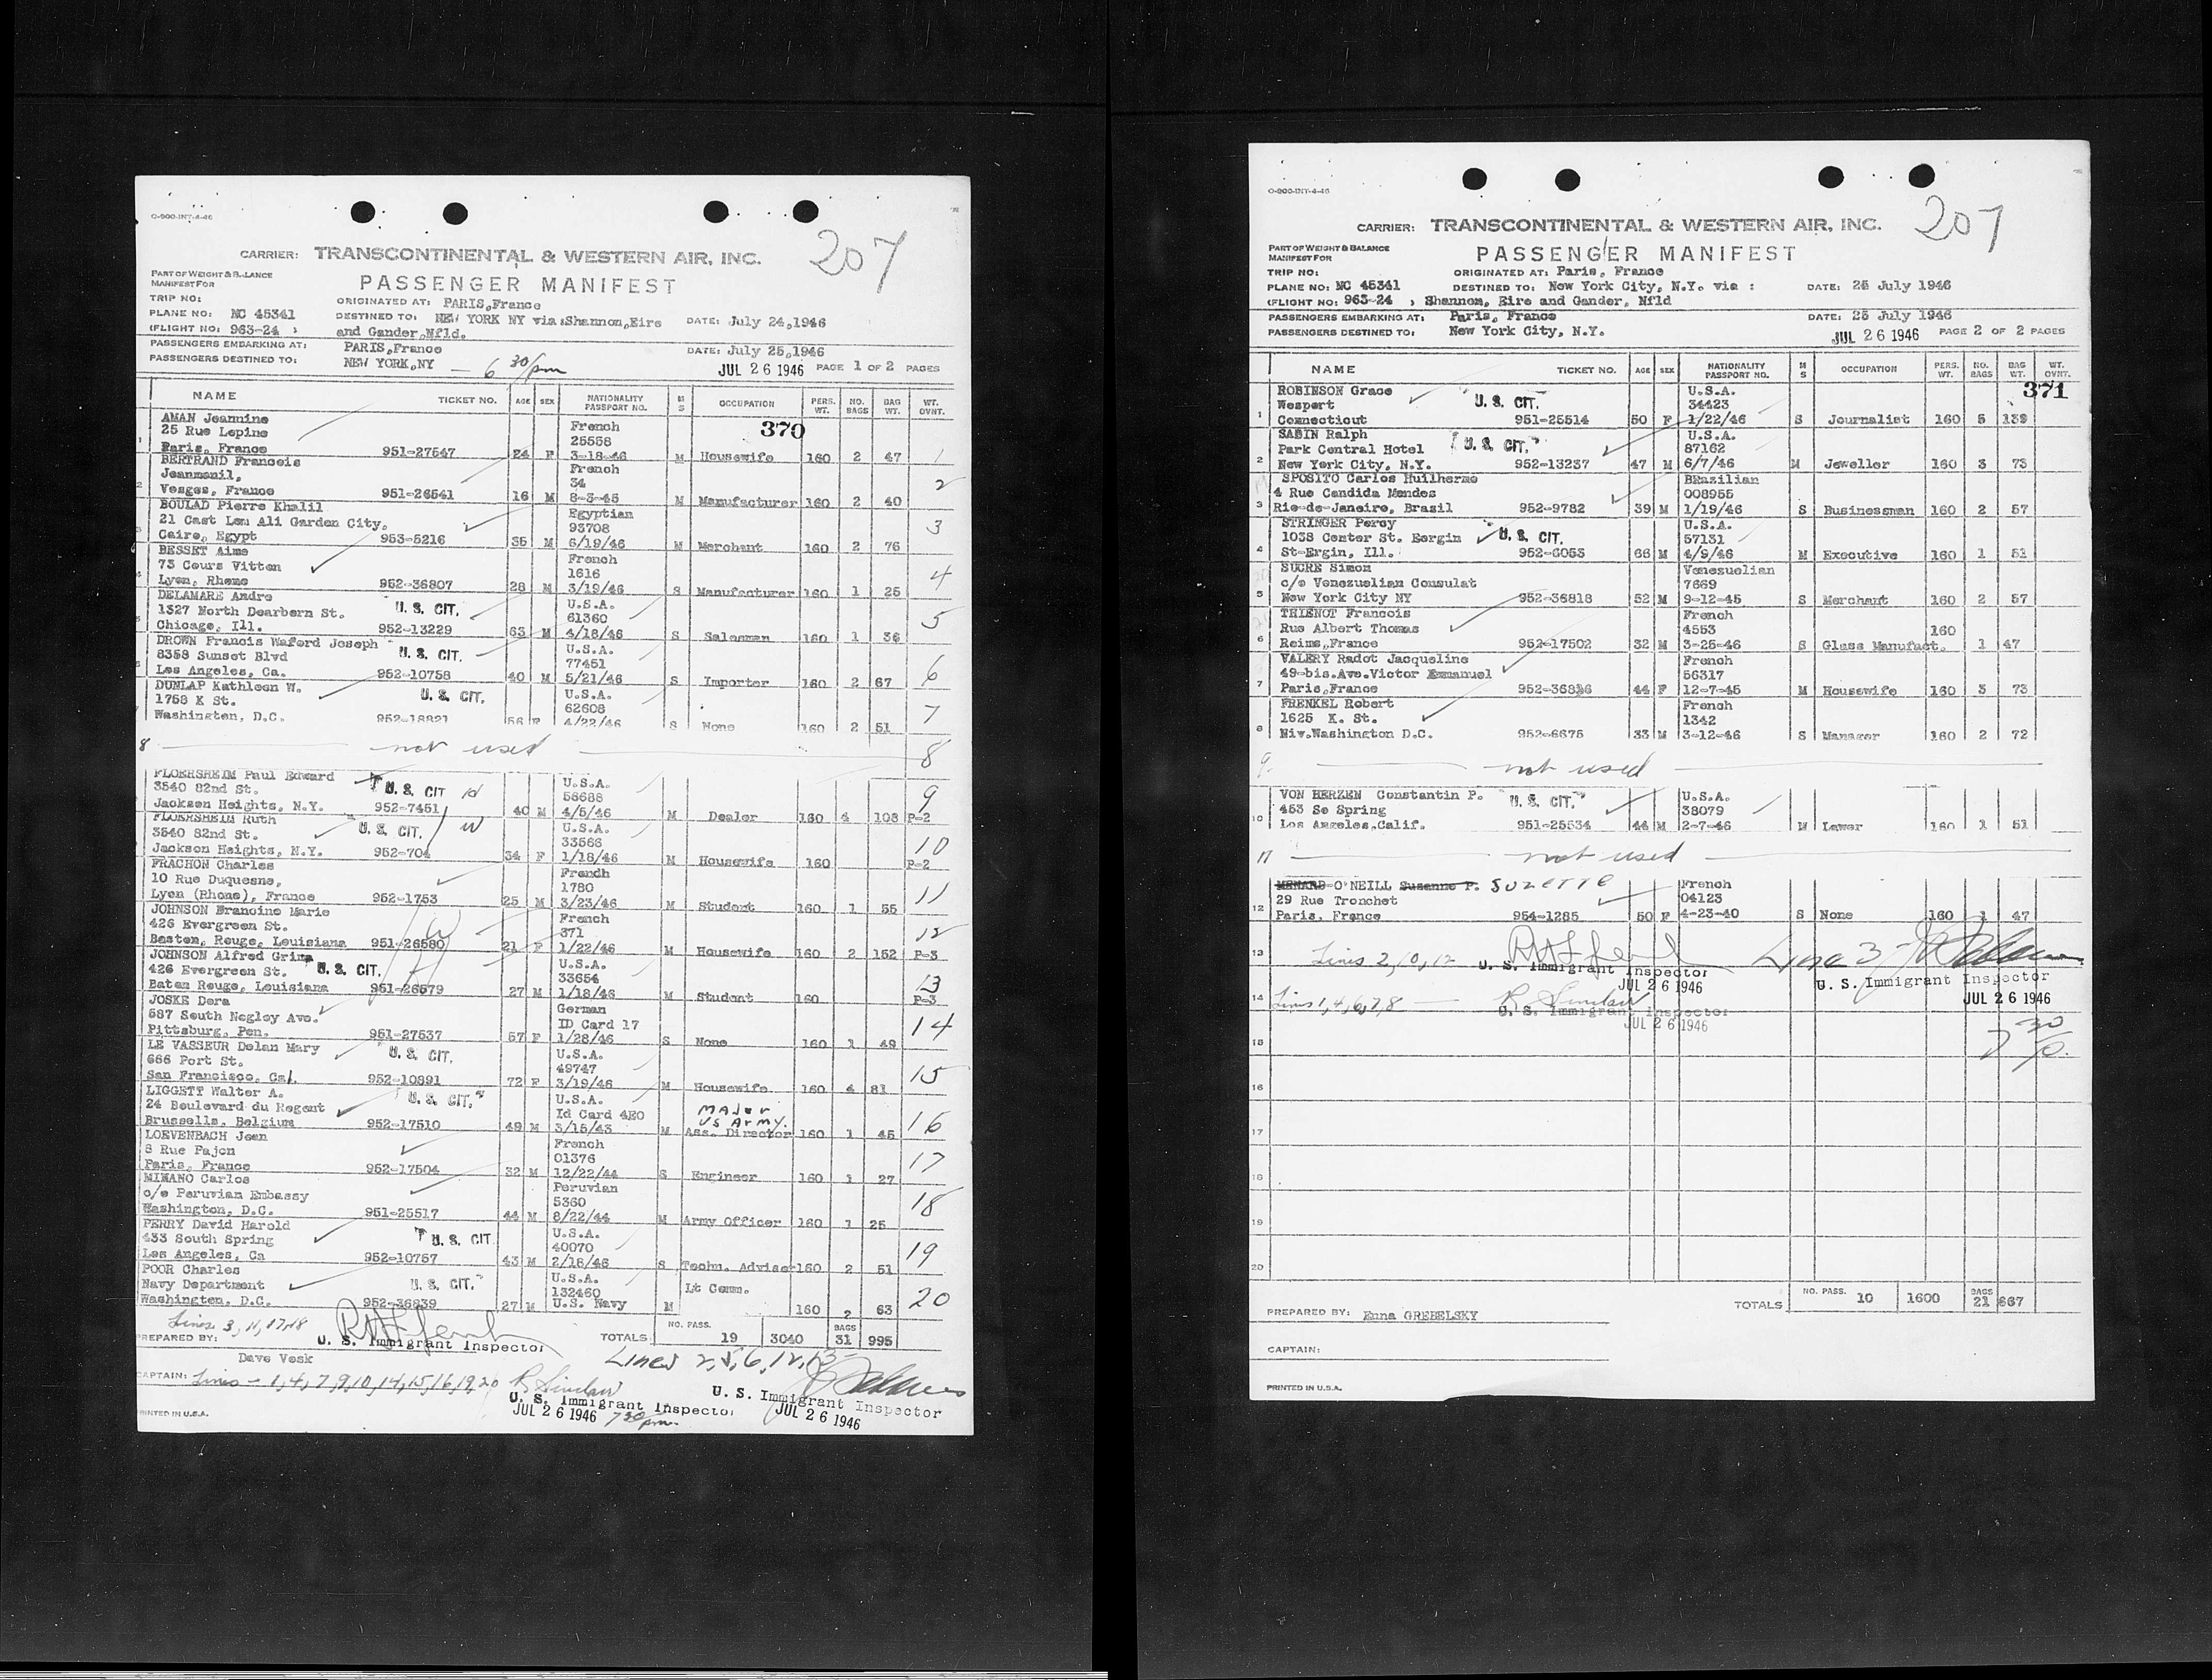 O-900-INT-4-46
207
CARRIER: TRANSCONTINENTAL & WESTERN AIR, INC.
PART OF WEIGHT & BALANCE
MANIFEST FOR
PASSENGER MANIFEST
TRIP NO:
ORIGINATED AT: PARIS,France
PLANE NO: NC 45341
DESTINED TO: NEW YORK NY via:Shannon,Eire
DATE: July 24,1946
(FLIGHT NO: 963-24 )
and Gander,Nfld.
PASSENGERS EMBARKING AT: PARIS,France
DATE: July 25,1946
PASSENGERS DESTINED TO: NEW YORK,NY — 6 30/pm
JUL 26 1946 PAGE 1 OF 2 PAGES
NAME TICKET NO. AGE SEX NATIONALITY PASSPORT NO. M S OCCUPATION PERS. WT. NO. BAGS BAG WT. WT. OVNT.
370
AMAN Jeannine French
25 Rue Lepine 25558
1 Paris, France 951-27547 24 F 3-18-46 M Housewife 160 2 47 1
BERTRAND Francois French
Jeanmenil, 34
2 Vosges, France 951-26541 16 M 8-3-45 M Manufacturer 160 2 40 2
BOULAD Pierre Khalil Egyptian
21 Cast Leu Ali Garden City, 93708
3 Cairo, Egypt 953-5216 35 M 6/19/46 M Merchant 160 2 76 3
BESSET Aime French
73 Cours Vitton 1616
4 Lyon, Rhone 952-36807 28 M 3/19/46 S Manufacturer 160 1 25 4
DELAMARE Andre U. S. CIT. U.S.A.
1327 North Dearbern St. 61360
5 Chicago, Ill. 952-13229 63 M 4/18/46 S Salesman 160 1 36 5
DROWN Francis Waford Joseph U.S.A.
8358 Sunset Blvd U. S. CIT. 77451
6 Los Angeles, Ca. 952-10758 40 M 5/21/46 S Importer 160 2 67 6
DUNLAP Kathleen W. U. S. CIT. U.S.A.
1758 K St. 62608
7 Washington, D.C. 952-18821 56 F 4/22/46 S None 160 2 51 7
8 not used 8
FLOERSHEIM Paul Edward U.S.A.
3540 82nd St. U. S. CIT H 58688
Jackson Heights, N.Y. 952-7451 40 M 4/5/46 M Dealer 160 4 108 P=2 9
FLOERSHEIM Ruth U. S. CIT. W U.S.A.
3540 82nd St. 33566
Jackson Heights, N.Y. 952-704 34 F 1/18/46 M Housewife 160 P=2 10
FRACHON Charles Frendh
10 Rue Duquesne, 1780
Lyon (Rhone), France 952-1753 25 M 3/23/46 M Student 160 1 55 11
JOHNSON Francine Marie French
426 Evergreen St. W 371
Baston, Rouge, Louisiana 951-26580 21 F 1/22/46 M Housewife 160 2 152 P=3 12
JOHNSON Alfred Grima U.S.A.
426 Evergreen St. U. S. CIT. H 33654
Baten Rouge, Louisiana 951-26579 27 M 1/18/46 M Student 160 P=3 13
JOSKE Dora German
587 South Negley Ave. ID Card 17
Pittsburg, Pen. 951-27537 57 F 1/28/46 S None 160 1 49 14
LE VASSEUR Dolan Mary U. S. CIT. U.S.A.
666 Port St. 49747
San Francisco, Cal. 952-10891 72 F 3/19/46 M Housewife 160 4 81 15
LIGGETT Walter A. U. S. CIT. U.S.A.
24 Boulevard du Regent Id Card 4EO Major US Army.
Brussells, Belgium 952-17510 49 M 3/15/43 M Ass. Director 160 1 45 16
LOEVENBACH Jean French
8 Rue Pajon 01376
Paris, France 952-17504 32 M 12/22/44 S Engineer 160 1 27 17
MINANO Carlos Peruvian
c/o Peruvian Embassy 5360
Washington, D.C. 951-25517 44 M 8/22/44 M Army Officer 160 1 25 18
PERRY David Harold U.S.A.
433 South Spring U. S. CIT. 40070
Los Angeles, Ca 952-10757 43 M 2/18/46 S Techn. Adviser 160 2 51 19
POOR Charles U.S.A.
Navy Department U. S. CIT. 132460 Lt Comm.
Washington, D.C. 952-36839 27 M U.S. Navy M 160 2 63 20
Lines 3, 11, 17, 18
U. S. Immigrant Inspector
TOTALS NO. PASS. 19 3040 BAGS 31 995
PREPARED BY: Dave Vosk
Lines 2, 5, 6, 12, 13
CAPTAIN: Lines - 1, 4, 7, 9, 10, 14, 15, 16, 19, 20 R Sinclair
U. S. Immigrant Inspector
JUL 26 1946 7 30 pm.
U. S. Immigrant Inspector
JUL 26 1946
PRINTED IN U.S.A.
O-900-INT-4-46
207
CARRIER: TRANSCONTINENTAL & WESTERN AIR, INC.
PART OF WEIGHT & BALANCE
MANIFEST FOR
PASSENGER MANIFEST
TRIP NO:
ORIGINATED AT: Paris, France
PLANE NO: NC 45341
DESTINED TO: New York City, N.Y. via :
DATE: 25 July 1946
(FLIGHT NO: 963-24 ) Shannon, Eire and Gander, Nfld
PASSENGERS EMBARKING AT: Paris, France
DATE: 25 July 1946
PASSENGERS DESTINED TO: New York City, N.Y.
JUL 26 1946 PAGE 2 OF 2 PAGES
NAME TICKET NO. AGE SEX NATIONALITY PASSPORT NO. M S OCCUPATION PERS. WT. NO. BAGS BAG WT. WT. OVNT.
371
ROBINSON Grace U.S.A.
Wesport U. S. CIT. 34423
1 Connecticut 951-25514 50 F 1/22/46 S Journalist 160 5 139
SABIN Ralph U.S.A.
Park Central Hotel U. S. CIT. 87162
2 New York City, N.Y. 952-13237 47 M 6/7/46 M Jeweller 160 3 73
SPOSITO Carlos Huilherme BRazilian
4 Rue Candida Mendes 008955
3 Rio-de-Janeiro, Brasil 952-9782 39 M 1/19/46 S Businessman 160 2 57
STRINGER Percy U.S.A.
1038 Center St. Eergin U. S. CIT. 57131
4 St-Ergin, Ill. 952-6053 66 M 4/9/46 M Executive 160 1 51
SUCRE Simon Venezuelian
c/o Venezuelian Consulat 7669
5 New York City NY 952-36818 52 M 9-12-45 S Merchant 160 2 57
THIENOT Francois French
Rue Albert Thomas 4553 160
6 Reims,France 952-17502 32 M 3-25-46 S Glass Manufact. 1 47
VALERY Radot Jacqueline French
49-bis.Ave.Victor Emmanuel 56317
7 Paris,France 952-36816 44 F 12-7-45 M Housewife 160 3 73
FRENKEL Robert French
1625 K. St. 1342
8 Niw.Washington D.C. 952-6675 33 M 3-12-46 S Manager 160 2 72
9. not used
VON HERZEN Constantin P. U. S. CIT. U.S.A.
453 So Spring 38079
10 Los Angeles,Calif. 951-25534 44 M 2-7-46 M Lawer 160 1 51
11 not used
MENARD-O'NEILL Suzanne P. SUZETTE French
29 Rue Tronchet 04123
12 Paris, France 954-1285 50 F 4-23-40 S None 160 1 47
13 Lines 2, 10, 12
U. S. Immigrant Inspector
JUL 26 1946
Line 3
U. S. Immigrant Inspector
JUL 26 1946
14 Lines 1, 4, 6, 7, 8 — R Sinclair
U. S. Immigrant Inspector
JUL 26 1946
7 30 p.
15
16
17
18
19
20
TOTALS NO. PASS. 10 1600 BAGS 21 667
PREPARED BY: Enna GREBELSKY
CAPTAIN:
PRINTED IN U.S.A.